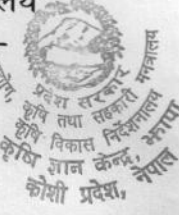 प्रदेश सरकार
कृषि तथा सहकारी मन्त्रालय
कृषि विकास निर्देशनालय
कृषि ज्ञान केन्द्र, झापा
कोशी प्रदेश, नेपाल